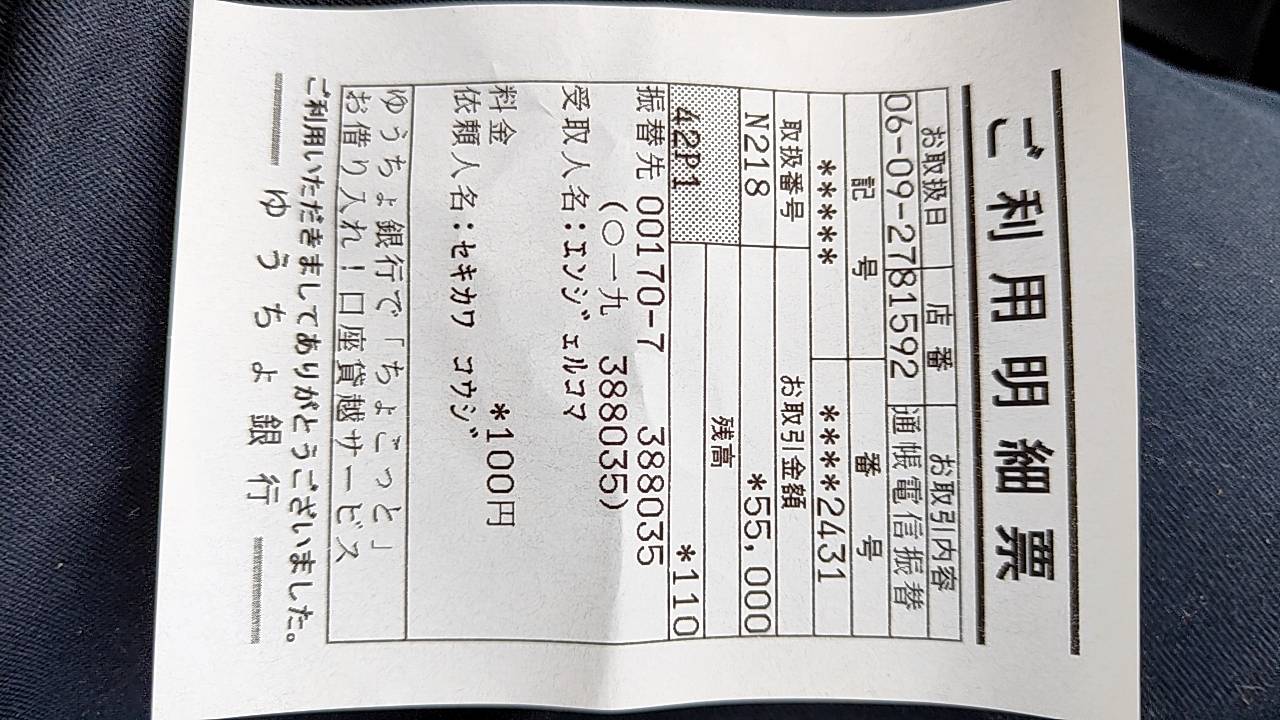 ご利用明細票
お取扱日 店番 お取引内容
06-09-27 81592 通帳電信振替
記号 番号
***** ****2431
取扱番号 お取引金額
N218 *55,000
残高
42P1 *110
振替先 00170-7 388035
(〇一九 388035)
受取人名:エンジェルコマ
料金 *100円
依頼人名:セキカワ コウジ
ゆうちょ銀行で「ちょこっと」
お借り入れ!口座貸越サービス
ご利用いただきましてありがとうございました。
ゆうちょ銀行